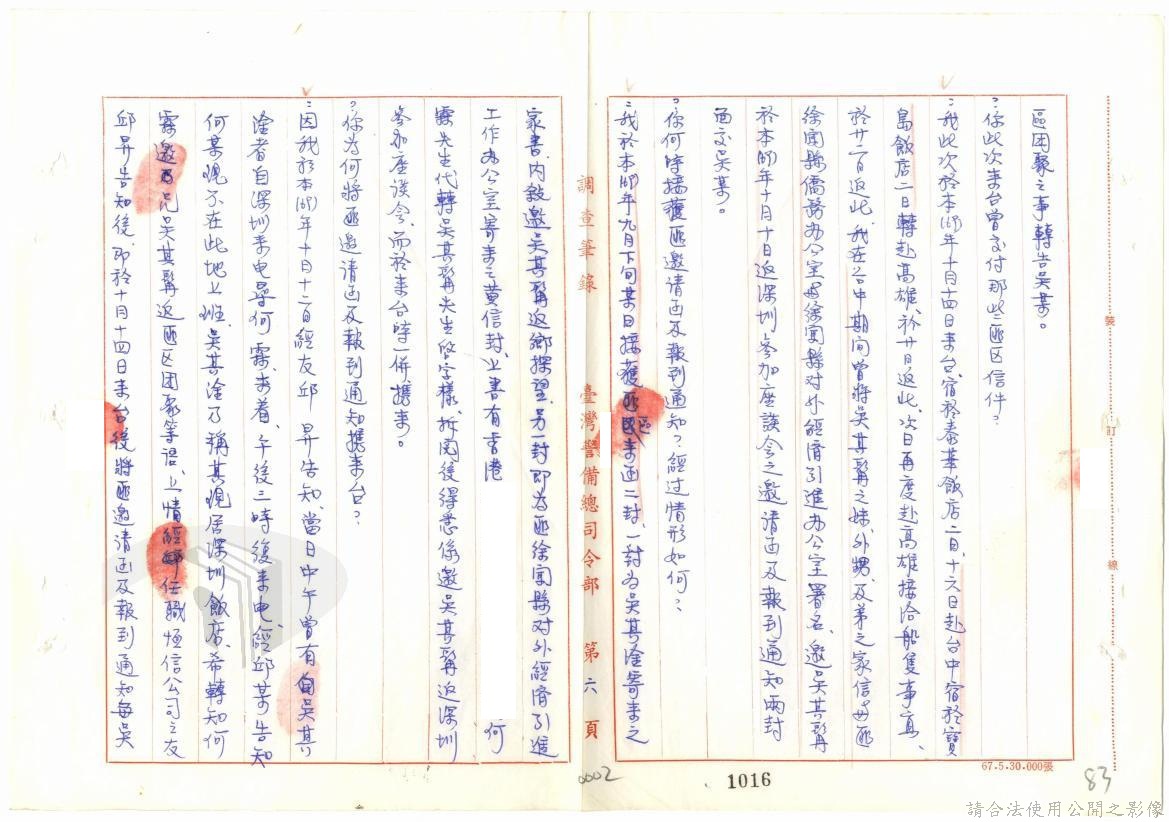 區困聚之事轉告吳某。
：你此次來台曾交付那些匪區信件？
：我此次於本(69)年十月十四日來台，宿於泰華飯店二日，十六日赴台中宿於寶
島飯店二日轉赴高雄，於廿日返北，次日再度赴高雄接洽船隻事宜，
於廿二日返北，我在台中期間曾將吳其髯之妹、外甥、及弟之家信，與匪
徐聞縣僑務辦公室與徐聞縣對外經濟引進辦公室署名，邀吳其髯
於本(69)年十月十日返深圳參加座談会之邀請函及報到通知兩封
面交吳某。
：你何時接獲匪邀請函及報到通知？經过情形如何？
：我於本(69)年九月下旬某日接獲匪區來函二封，一封為吳其淦寄來之
調查筆錄 臺灣警備總司令部 第六頁
家書，內敘邀吳其髯返鄉探望，另一封即為匪徐聞縣對外經濟引進
工作办公室寄來之黃信封，上書有香港 何
霖先生代轉吳其髯先生啟字樣，拆閱後得悉係邀吳其髯返深圳
參加座談会，而於來台時一併携來。
：你為何將匪邀請函及報到通知携來台？
：因我於本(69)年十月十二日經友邱昇告知，當日中午曾有自吳其
淦者自深圳來电尋何霖，未着，午後三時復來电，經邱某告知
何某現不在此地上班，吳其淦乃稱其現居深圳飯店，希轉知何
霖邀乃兄吳其髯返匪区困聚等語，上情經任職恆信公司之友
邱昇告知後，即於十月十四日來台後將匪邀請函及報到通知與吳
裝
訂
線
67.5.30.000張
0002
1016
83
請合法使用公開之影像